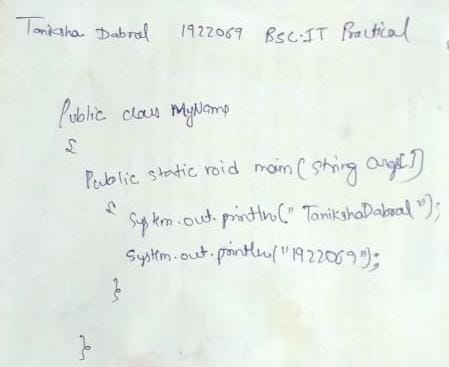 Taniksha Dabral 1922069 BSC-IT Practical
Public class MyName
{
Public static void main (string args[])
{ System.out.println(" TanikshaDabral ");
System.out.println("1922069");
}
}